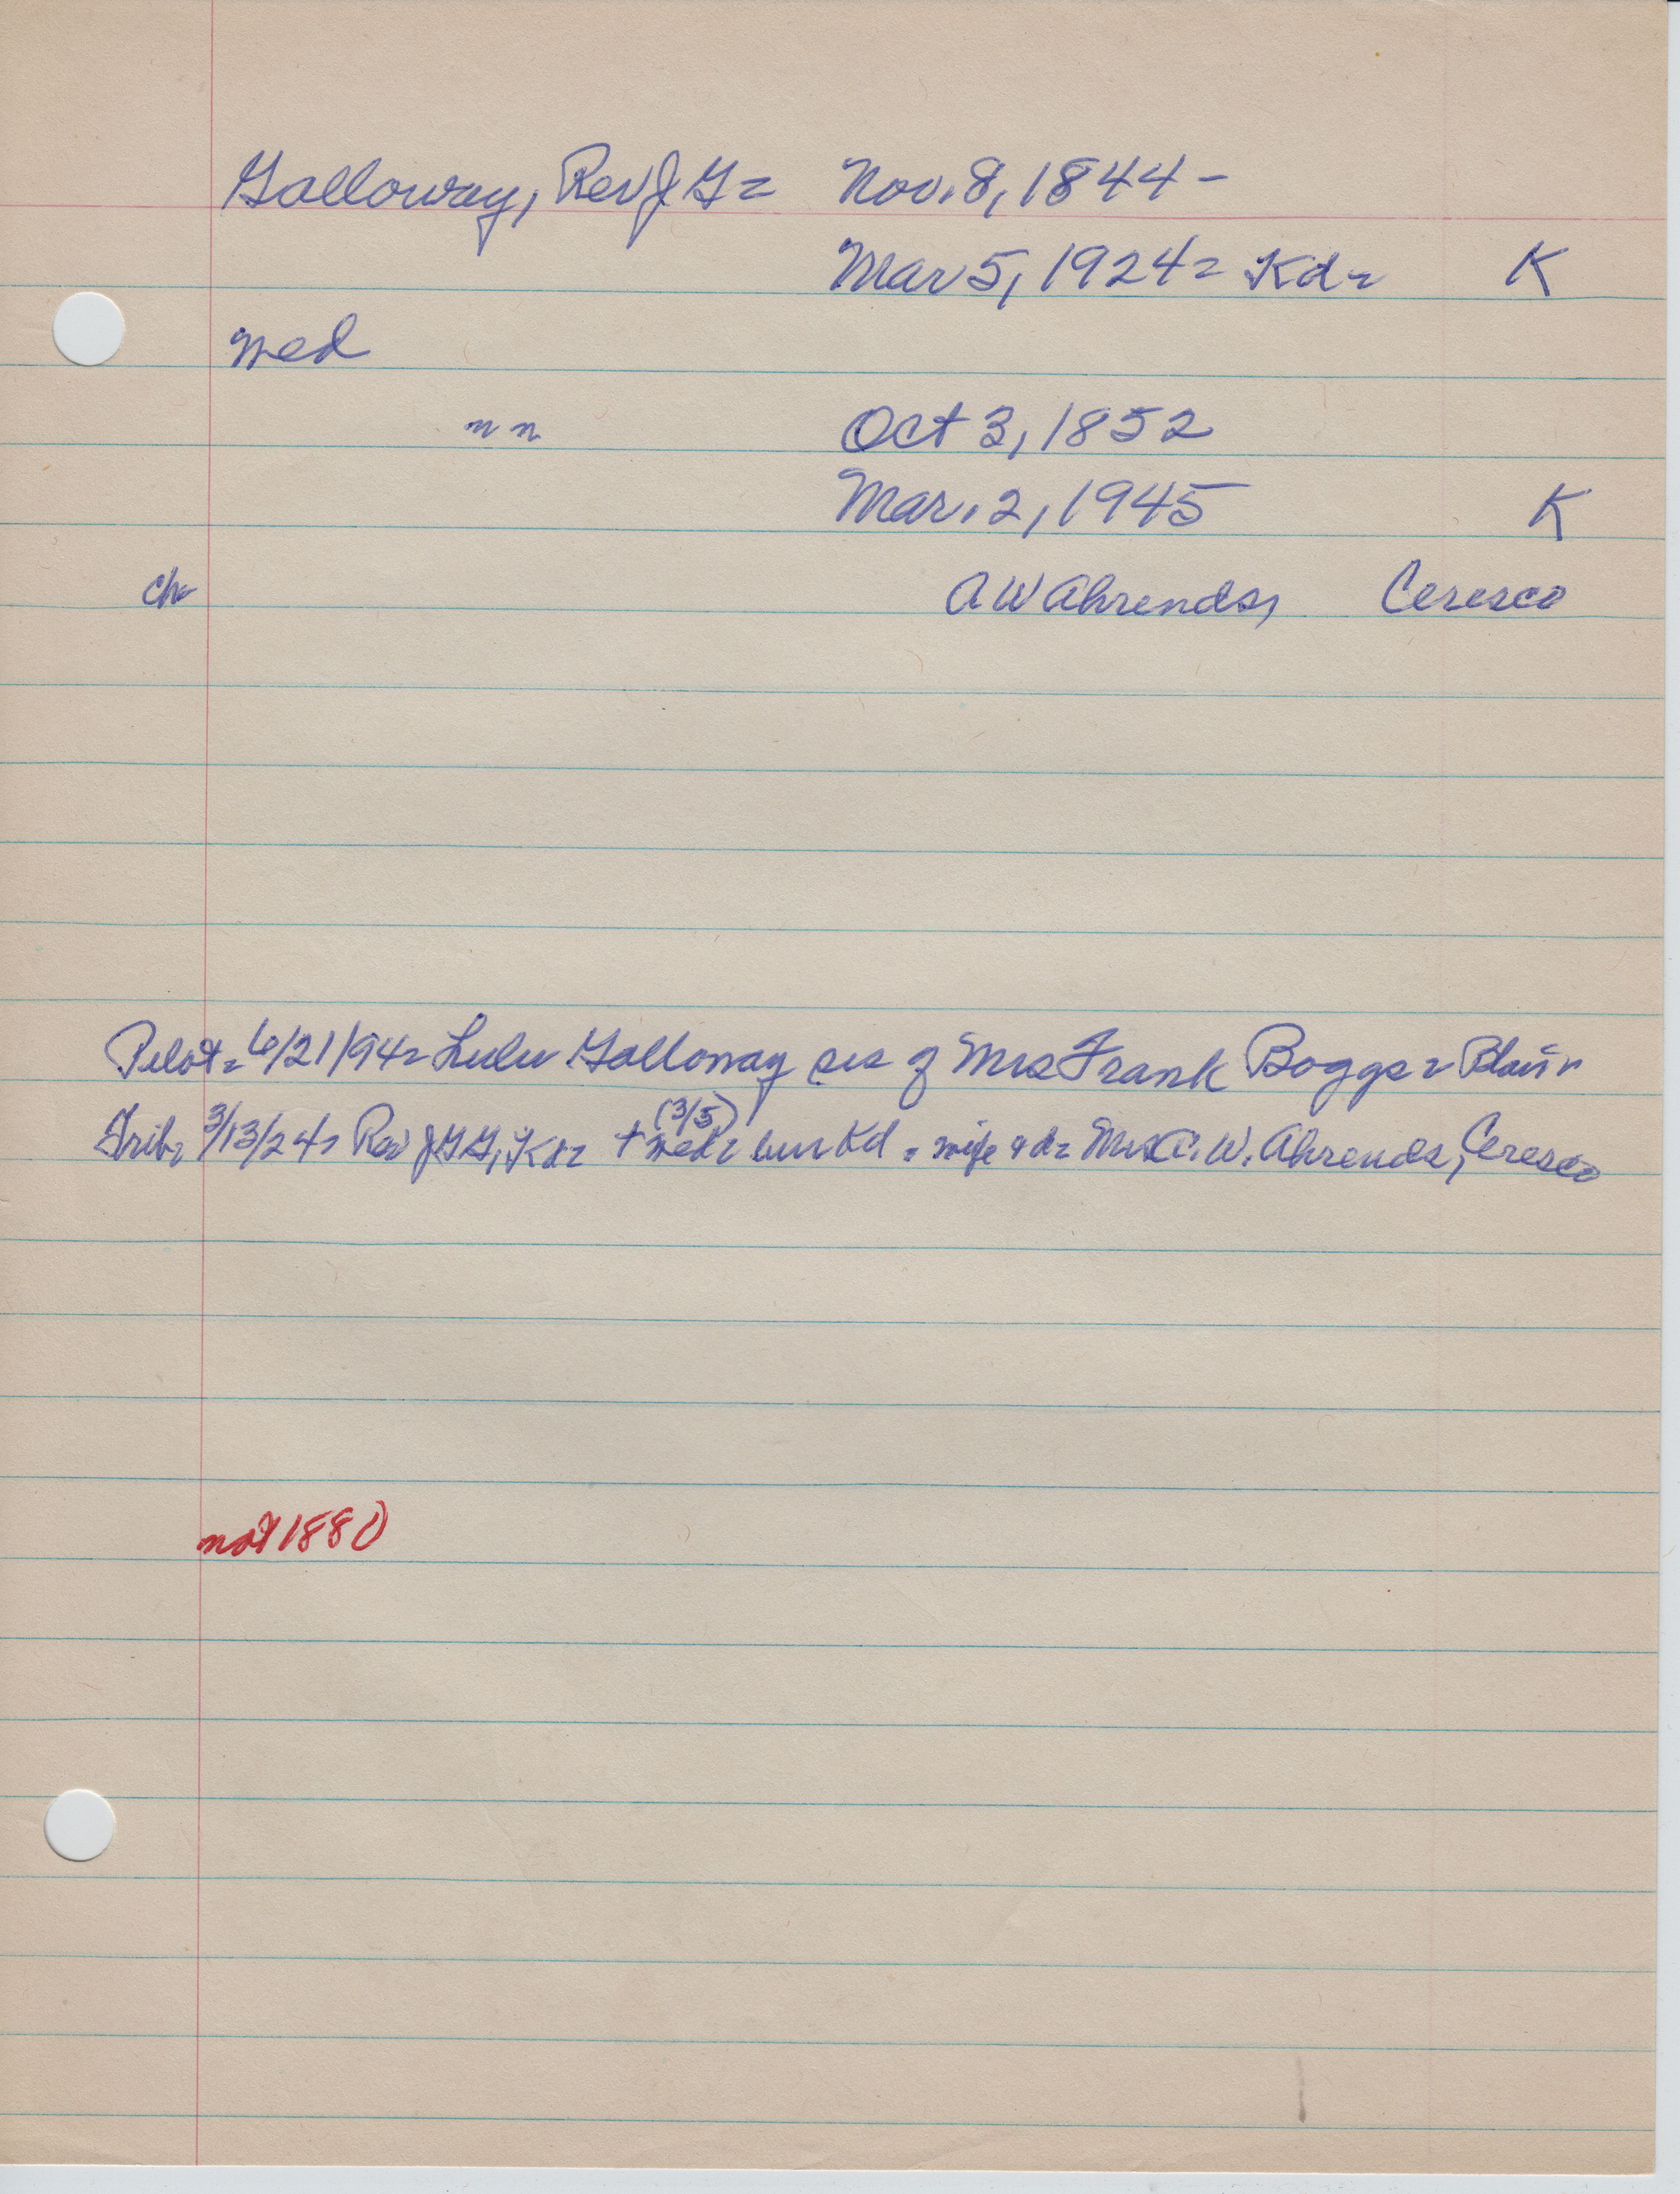 Galloway, Rev J G = Nov. 8, 1844 -
Mar 5, 1924 = Kd = K
wed
n n Oct 3, 1852
Mar. 2, 1945 K
ch A W Ahrends, Ceresco
Pilot = 6/21/94 = Lulu Galloway sis of Mrs Frank Boggs = Blair
(3/5)
Trib = 3/13/24 = Rev J G G, Kd = + wed = bur Kd = wife & d = Mrs A. W. Ahrends, Ceresco
not 1880